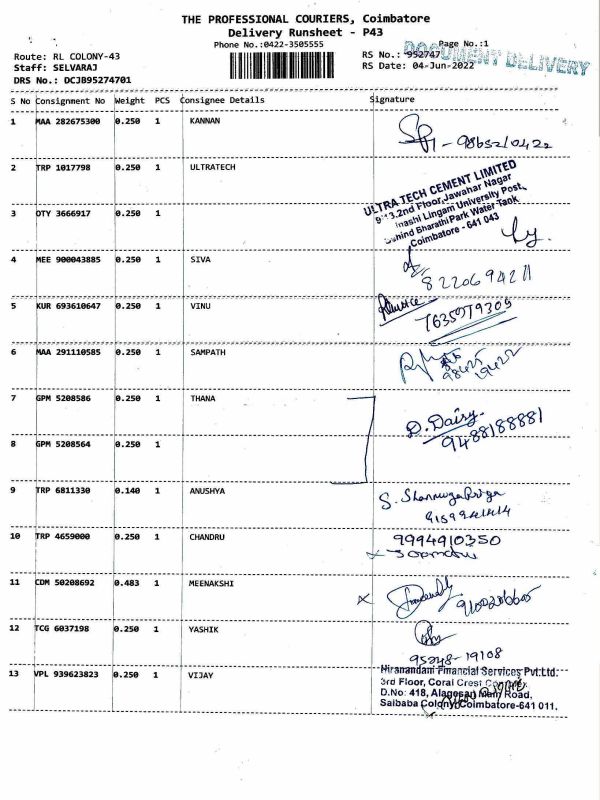 THE PROFESSIONAL COURIERS, Coimbatore
Delivery Runsheet - P43
Phone No.:0422-3505555
Page No.:1
Route: RL COLONY-43
RS No.: 952747
DOCUMENT DELIVERY
Staff: SELVARAJ
RS Date: 04-Jun-2022
DRS No.: DCJB95274701
S No Consignment No Weight PCS Consignee Details Signature
1 MAA 282675300 0.250 1 KANNAN
- 9865210422
2 TRP 1017798 0.250 1 ULTRATECH
ULTRA TECH CEMENT LIMITED
2nd Floor, Jawahar Nagar
Lingam University Post,
Behind Bharathi Park Water Tank
Coimbatore - 641 043
3 OTY 3666917 0.250 1
4 MEE 900043885 0.250 1 SIVA
8220694211
5 KUR 693610647 0.250 1 VINU
6 MAA 291110585 0.250 1 SAMPATH
98425 19422
7 GPM 5208586 0.250 1 THANA
D. Daisy.
9488188881
8 GPM 5208564 0.250 1
9 TRP 6811330 0.140 1 ANUSHYA
S. Shanmuga Priya
10 TRP 4659000 0.250 1 CHANDRU
9994910350
11 CDM 50208692 0.483 1 MEENAKSHI
12 TCG 6037198 0.250 1 YASHIK
95248-19108
13 VPL 939623823 0.250 1 VIJAY
Hiranandani Financial Services Pvt.Ltd.
3rd Floor, Coral Crest
D.No: 418, Alagesan Main Road,
Saibaba Colony, Coimbatore-641 011.